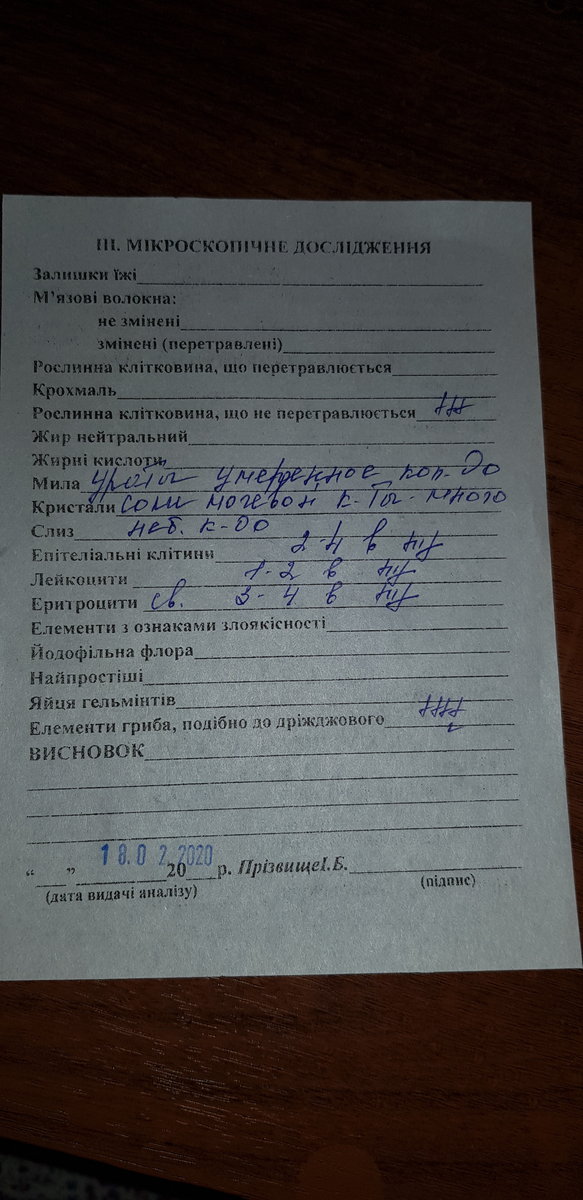 III. МІКРОСКОПІЧНЕ ДОСЛІДЖЕННЯ
Залишки їжі
М'язові волокна:
не змінені
змінені (перетравлені)
Рослинна клітковина, що перетравлюється
Крохмаль
Рослинна клітковина, що не перетравлюється +++
Жир нейтральний
Жирні кислоти
Мила ураты умеренное кол-во
Кристали соли мочевой к-ты - много
Слиз неб. к-во
Епітеліальні клітини 2-4 в п/з
Лейкоцити 1-2 в п/з
Еритроцити св. 3-4 в п/з
Елементи з ознаками злоякісності
Йодофільна флора
Найпростіші
Яйця гельмінтів
Елементи гриба, подібно до дріжджового +++
ВИСНОВОК
18.02.2020
“ ” 20 р. ПрізвищеІ.Б.
(дата видачі аналізу) (підпис)